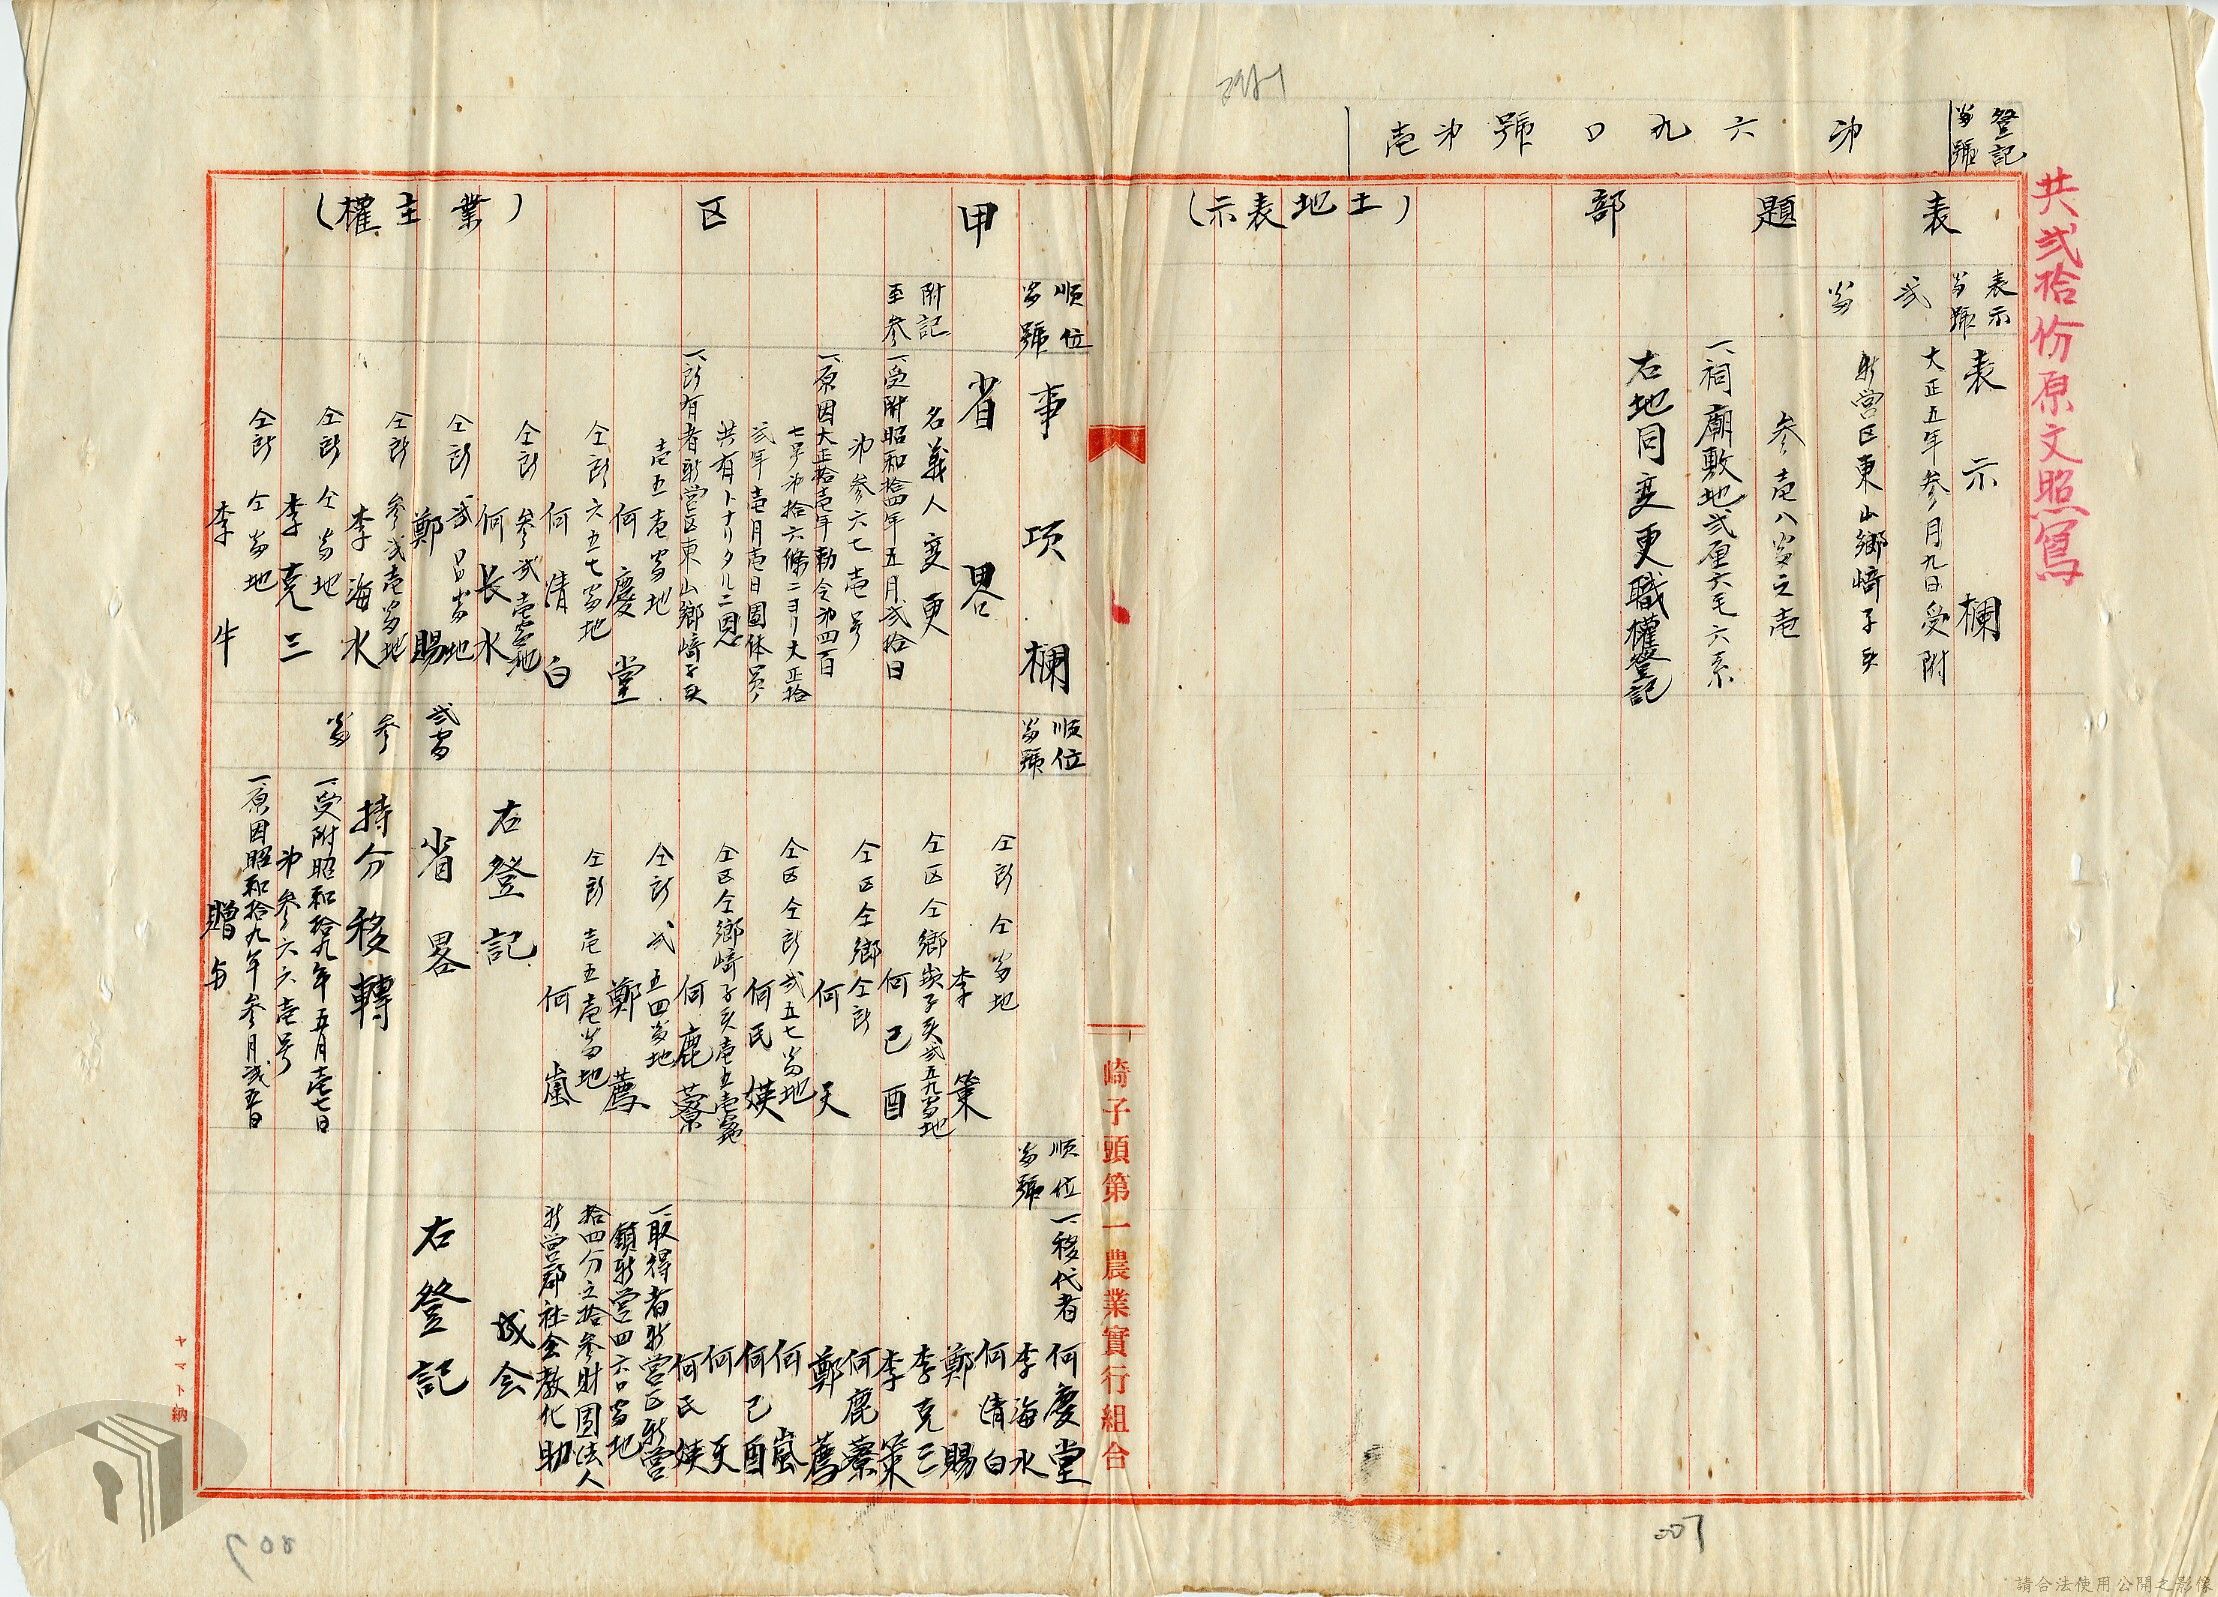 共弍拾份原文照寫
登記番號
第六九〇號第壱
表題部(土地表示)
表示番號
表示欄
弍番
大正五年参月九日受附
新営区東山鄉崎子头
参壱八番之壱
一、祠廟敷地弍厘六毛六糸
右地同変更職權登記
崎子頭第一農業實行組合
甲区(業主權)
順位番號
事項欄
省畧
附記
至参
名義人変更
一、受附昭和拾四年五月弍拾日
第参六七壱号
一、原因大正拾壱年勅令第四百
七号第拾六條ニヨリ大正拾
弍年壱月壱日團体員ノ
共有トナリタルニ因ル
一、所有者新営区東山鄉崎子头
壱五壱番地
何慶堂
仝所六五七番地
何清白
仝所参弍壱番地
何長水
仝所弍番地
鄭賜
仝所参弍壱番地
李海水
仝所仝番地
李克三
仝所仝番地
李牛
順位番號
仝所仝番地
李策
仝区仝鄉崁子头弍五九番地
何己酉
仝区仝鄉仝所
何天
仝区仝所弍五七番地
何氏媖
仝区仝鄉崎子头壱五壱番地
何鹿藔
仝所弍五四番地
鄭薦
仝所壱五壱番地
何嵐
右登記
弍番
省畧
参番
持分移轉
一、受附昭和拾九年五月壱七日
第参六六壱号
一、原因昭和拾九年参月弍五日
贈与
順位番號
一、移代者
何慶堂
李海水
何清白
鄭賜
李克三
李策
何鹿藔
鄭薦
何嵐
何己酉
何天
何氏媖
一、取得者新営区新営
鎮新営四六口番地
拾四分之拾参財団法人
新営郡社会教化助
成会
右登記
ヤマト納
007
請合法使用公開之影像